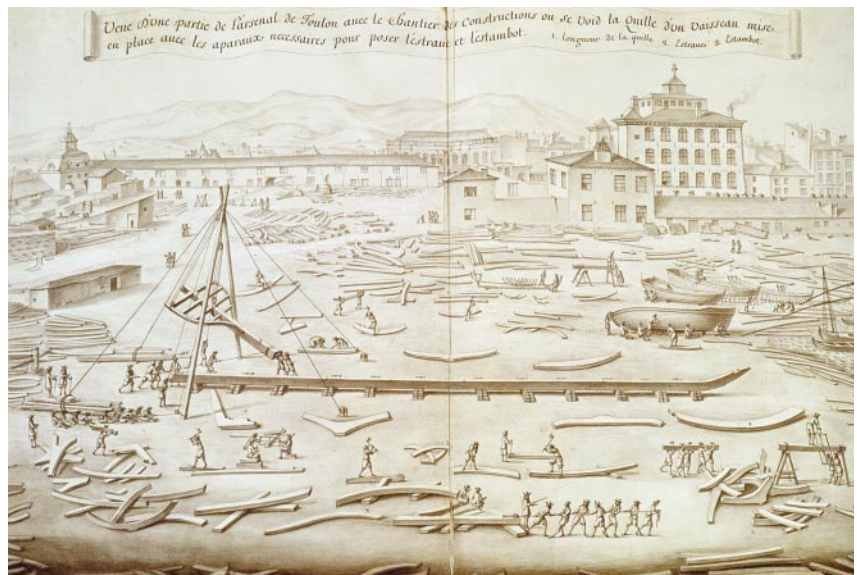 Veue d'Une partie de l'arsenal de Toulon avec le Chantier des Constructions ou se Void la Quille d'un Vaisseau mise
en place avec les aparaux necessaires pour poser l'estrave et l'estambot. 1. Longueur de la quille 2. Estraves 3. Estambot.